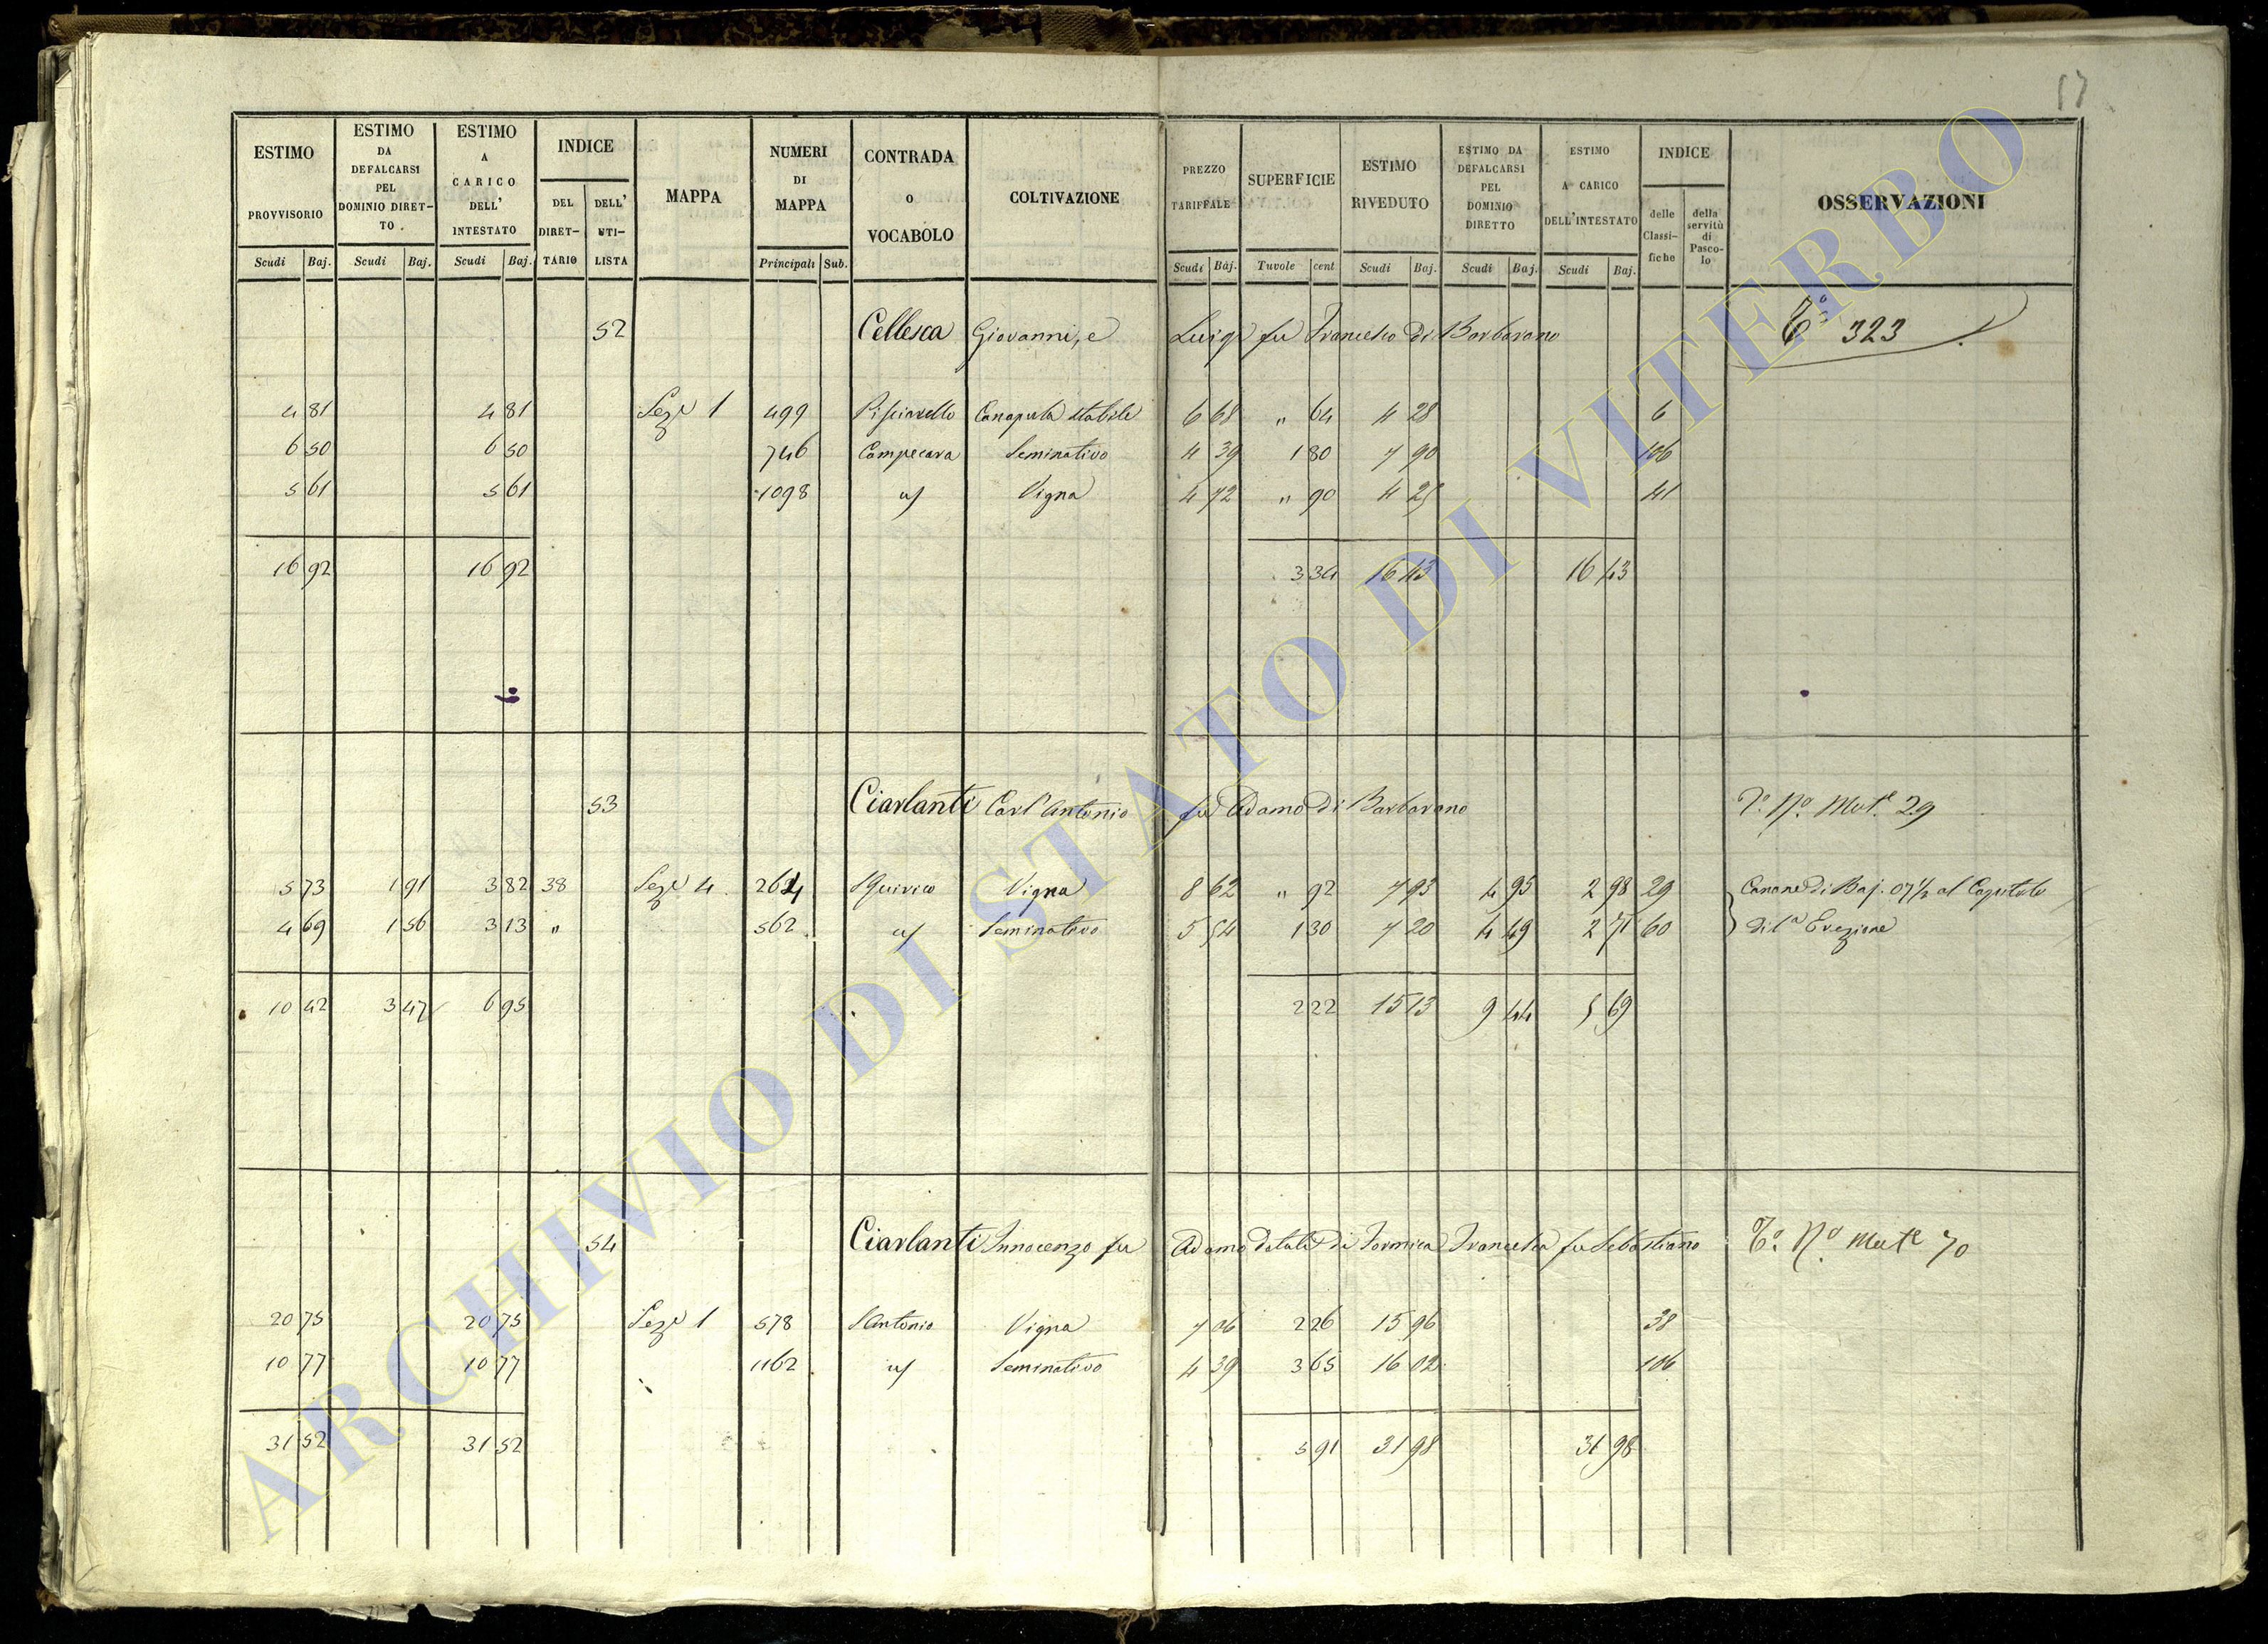 17
ESTIMO PROVVISORIO Scudi Baj.
ESTIMO DA DEFALCARSI PEL DOMINIO DIRET- TO. Scudi Baj.
ESTIMO A CARICO DELL' INTESTATO Scudi Baj.
INDICE DEL DIRET- TARIO DELL' UTI- LISTA
MAPPA
NUMERI DI MAPPA Principali Sub.
CONTRADA o VOCABOLO
COLTIVAZIONE
PREZZO TARIFFALE Scudi Baj.
SUPERFICIE Tavole cent
ESTIMO RIVEDUTO Scudi Baj.
ESTIMO DA DEFALCARSI PEL DOMINIO DIRETTO Scudi Baj.
ESTIMO A CARICO DELL'INTESTATO Scudi Baj.
INDICE delle Classi- fiche della servitù di Pasco- lo
OSSERVAZIONI
52 Cellesca Giovanni, e Luigi fu Francesco di Barbarano 323
4 81 4 81 Seze 1 499 Pisciarello Canapula stabile 6 68 " 64 4 28 6
6 50 6 50 746 Campecara Seminativo 4 39 1 80 7 90 106
5 61 5 61 1098 Vigna 4 72 " 90 4 25 41
16 92 16 92 3 34 16 43 16 43
53 Ciarlanti Carl'Antonio fu Adamo di Barbarano To. No. Mute 29
5 73 1 91 3 82 38 Seze 4 264 S Quirico Vigna 8 62 " 92 7 93 4 95 2 98 29 Canone di Baj. 07½ al Capitolo
4 69 1 56 3 13 " 562 Seminativo 5 54 1 30 7 20 4 49 2 71 60 di la Erezione
10 42 3 47 6 95 2 22 15 13 9 44 5 69
54 Ciarlanti Innocenzo fu Adamo dotali di Formica Francesca fu Sebastiano To. No. Mute 70
20 75 20 75 Seze 1 578 S Antonio Vigna 7 06 2 26 15 96 38
10 77 10 77 1162 Seminativo 4 39 3 65 16 02 106
31 52 31 52 5 91 31 98 31 98
ARCHIVIO DI STATO DI VITERBO